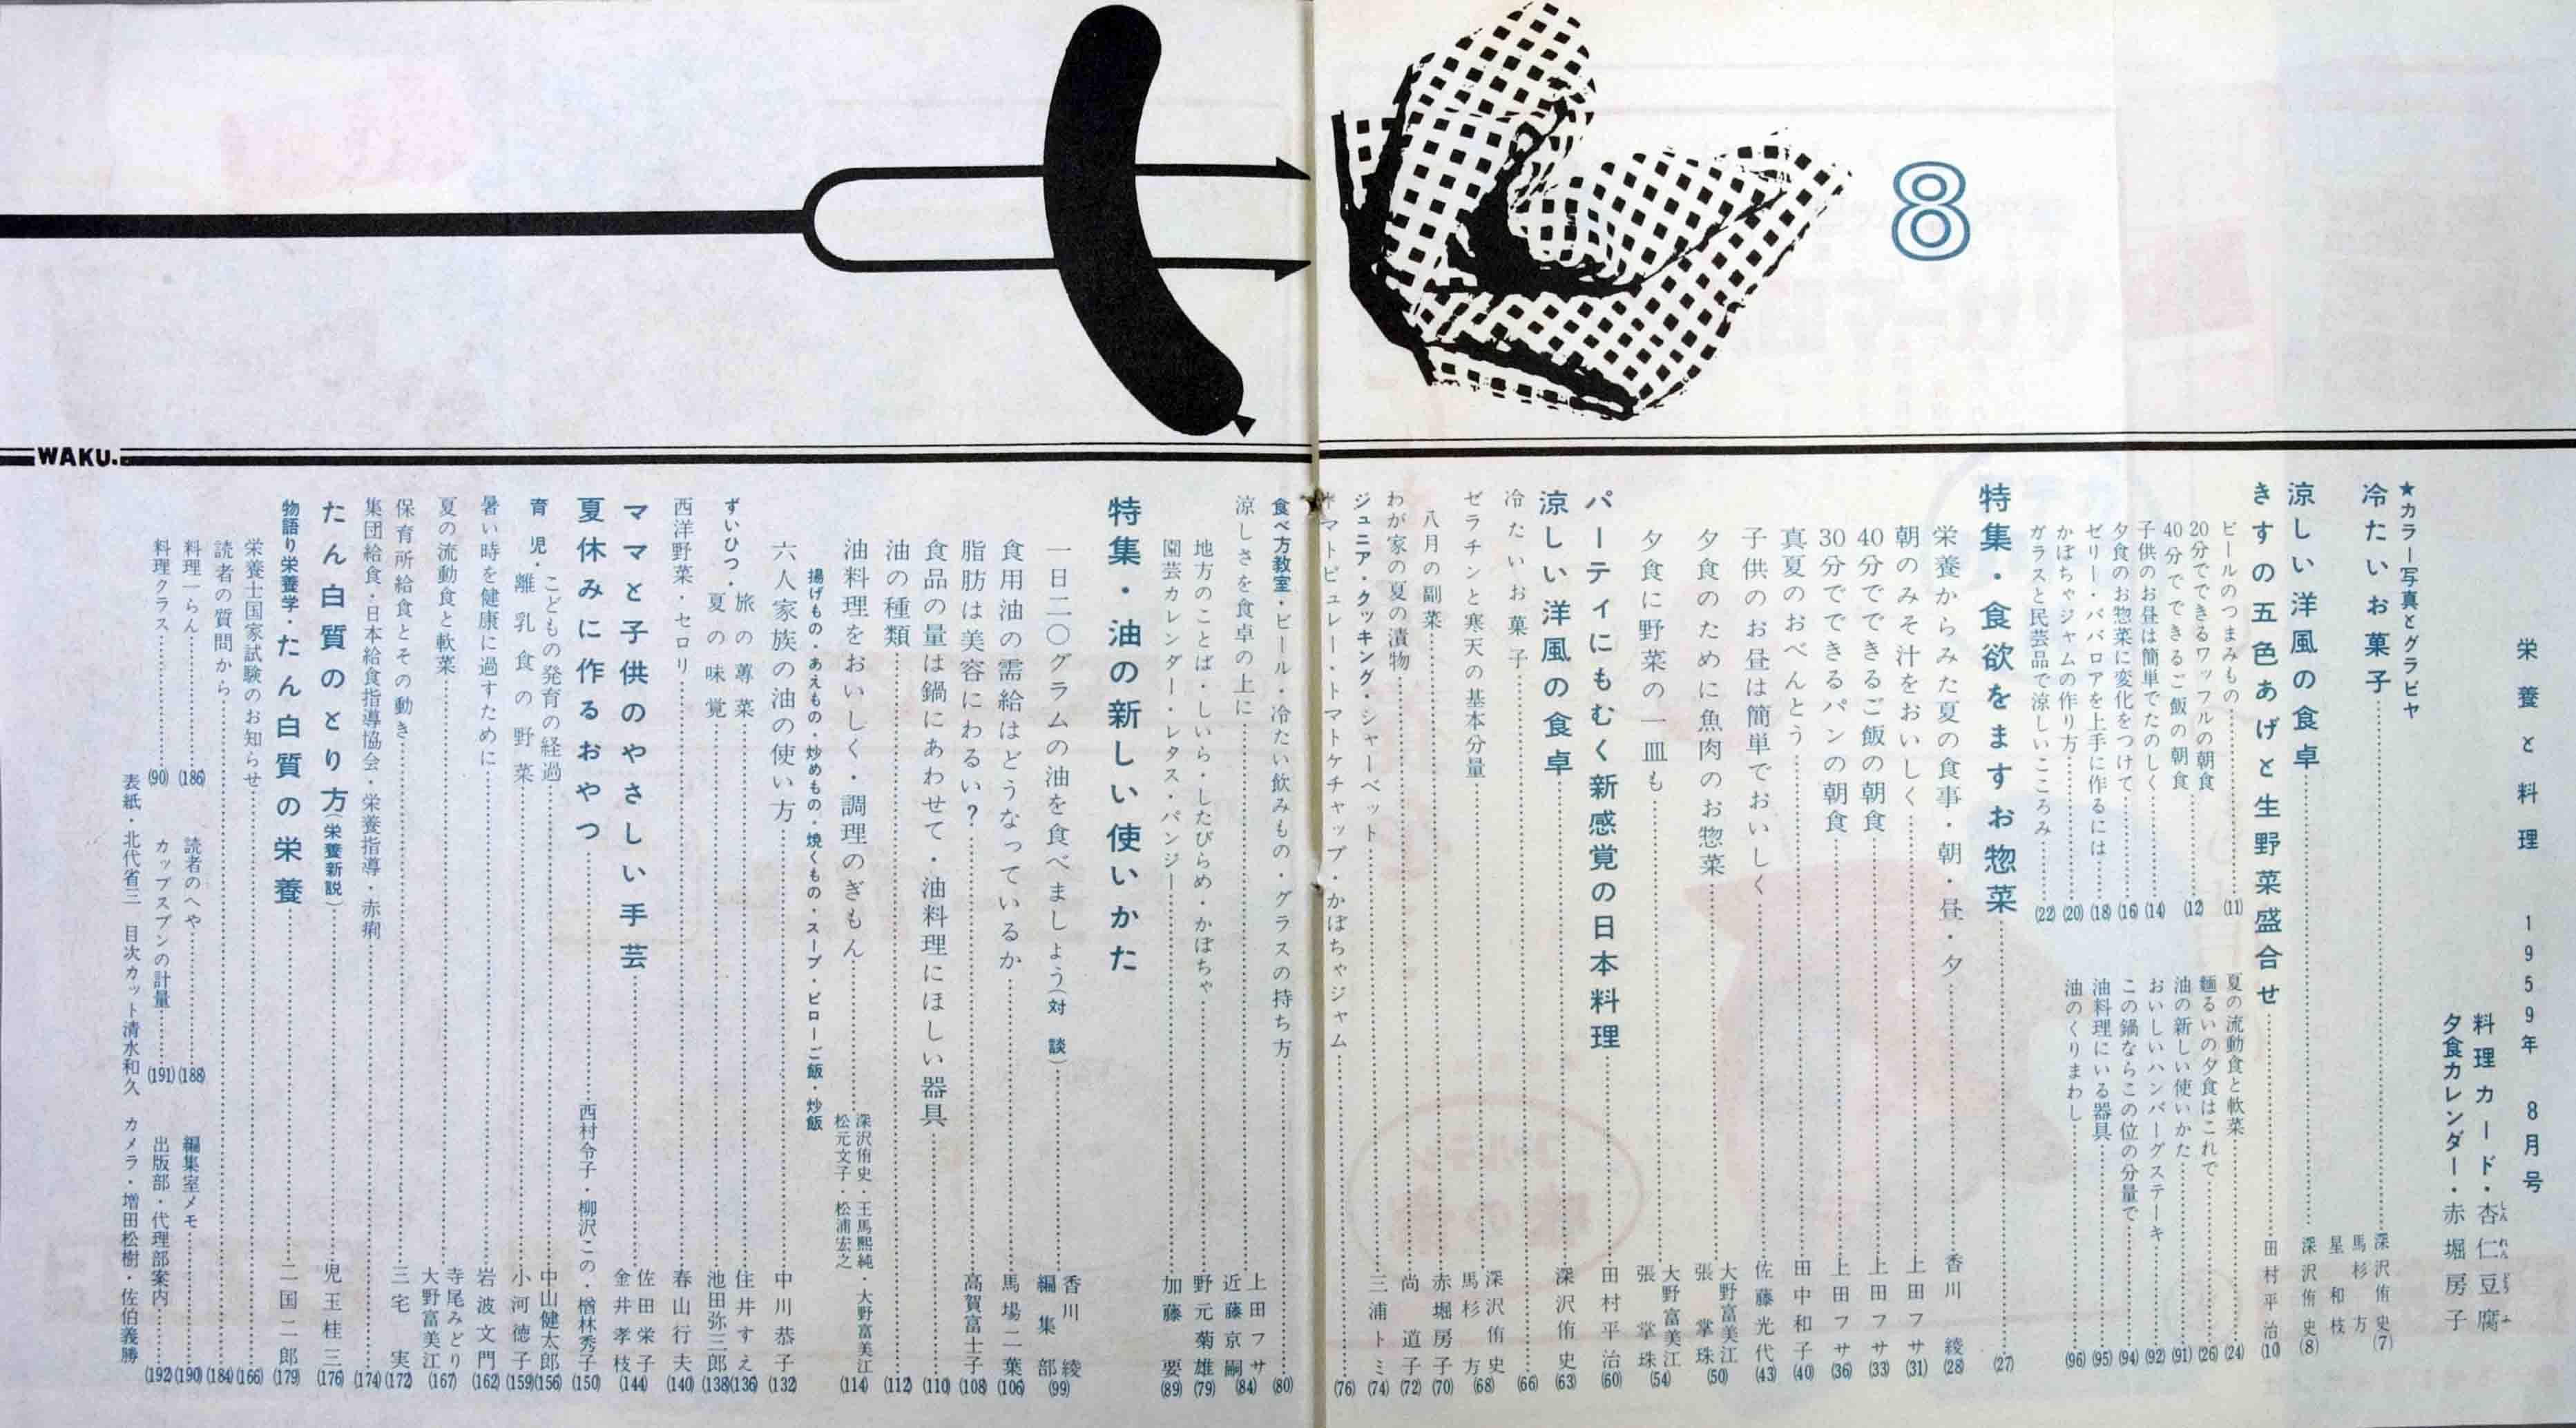 8
WAKU.
栄養と料理 1959年 8月号
料理カード・杏仁豆腐
夕食カレンダー・赤堀房子
★カラー写真とグラビヤ
冷たいお菓子……深沢侑史 馬杉方 星和枝(7)
涼しい洋風の食卓……深沢侑史(8)
きすの五色あげと生野菜盛合せ……田村平治(10)
ビールのつまみもの……(11)
20分でできるワッフルの朝食
40分でできるご飯の朝食……(12)
子供のお昼は簡単でたのしく……(14)
夕食のお惣菜に変化をつけて……(16)
ゼリー・ババロアを上手に作るには……(18)
かぼちゃジャムの作り方……(20)
ガラスと民芸品で涼しいこころみ……(22)
夏の流動食と軟菜……(24)
麺るいの夕食はこれで……(26)
油の新しい使いかた……(91)
おいしいハンバーグステーキ……(92)
この鍋ならこの位の分量で……(94)
油料理にいる器具……(95)
油のくりまわし……(96)
特集・食欲をますお惣菜……(27)
栄養からみた夏の食事・朝・昼・夕……香川綾(28)
朝のみそ汁をおいしく……上田フサ(31)
40分でできるご飯の朝食……上田フサ(33)
30分でできるパンの朝食……上田フサ(36)
真夏のおべんとう……田中和子(40)
子供のお昼は簡単でおいしく……佐藤光代(43)
夕食のために魚肉のお惣菜……大野富美江 張掌珠(50)
夕食に野菜の一皿も……大野富美江 張掌珠(54)
パーティにもむく新感覚の日本料理……田村平治(60)
涼しい洋風の食卓……深沢侑史(63)
冷たいお菓子……(66)
ゼラチンと寒天の基本分量……深沢侑史 馬杉方(68)
八月の副菜……赤堀房子(70)
わが家の夏の漬物……尚道子(72)
ジュニア・クッキング・シャーベット……三浦トミ(74)
トマトピュレー・トマトケチャップ・かぼちゃジャム……(76)
食べ方教室・ビール・冷たい飲みもの・グラスの持ち方……(80)
涼しさを食卓の上に……上田フサ 近藤京嗣(84)
地方のことば・しいら・したびらめ・かぼちゃ……野元菊雄(79)
園芸カレンダー・レタス・パンジー……加藤要(89)
特集・油の新しい使いかた
一日二〇グラムの油を食べましょう(対談)……香川綾 編集部(99)
食用油の需給はどうなっているか……馬場二葉(106)
脂肪は美容にわるい?……高賀富士子(108)
食品の量は鍋にあわせて・油料理にほしい器具……(110)
油の種類……(112)
油料理をおいしく・調理のぎもん……深沢侑史・王馬熙純・大野富美江 松元文子・松浦宏之(114)
揚げもの・あえもの・炒めもの・焼くもの・スープ・ピローご飯・炒飯
六人家族の油の使い方……中川恭子(132)
ずいひつ・旅の蓴菜……住井すえ(136)
夏の味覚……池田弥三郎(138)
西洋野菜・セロリ……春山行夫(140)
ママと子供のやさしい手芸……佐田栄子 金井孝枝(144)
夏休みに作るおやつ……西村令子・柳沢この・楢林秀子(150)
育児・こどもの発育の経過……中山健太郎(156)
離乳食の野菜……小河徳子(159)
暑い時を健康に過すために……岩波文門(162)
夏の流動食と軟菜……寺尾みどり 大野富美江(167)
保育所給食とその動き……三宅実(172)
集団給食・日本給食指導協会・栄養指導・赤痢……(174)
たん白質のとり方(栄養新説)……児玉桂三(176)
物語り栄養学・たん白質の栄養……二国二郎(179)
栄養士国家試験のお知らせ……(166)
読者の質問から……(184)
料理一らん……(186)
読者のへや……(188)
編集室メモ……(190)
料理クラス……(90)
カップスプンの計量……(191)
出版部・代理部案内……(192)
表紙・北代省三 目次カット清水和久 カメラ・増田松樹・佐伯義勝